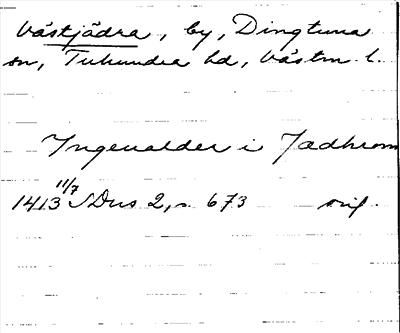 Västjädra, by, Dingtuna
sn, Tuhundra hd, Västm. l.
Ingeualder i Jadhrom
1413 11/7 SDns 2, s. 673 orig.